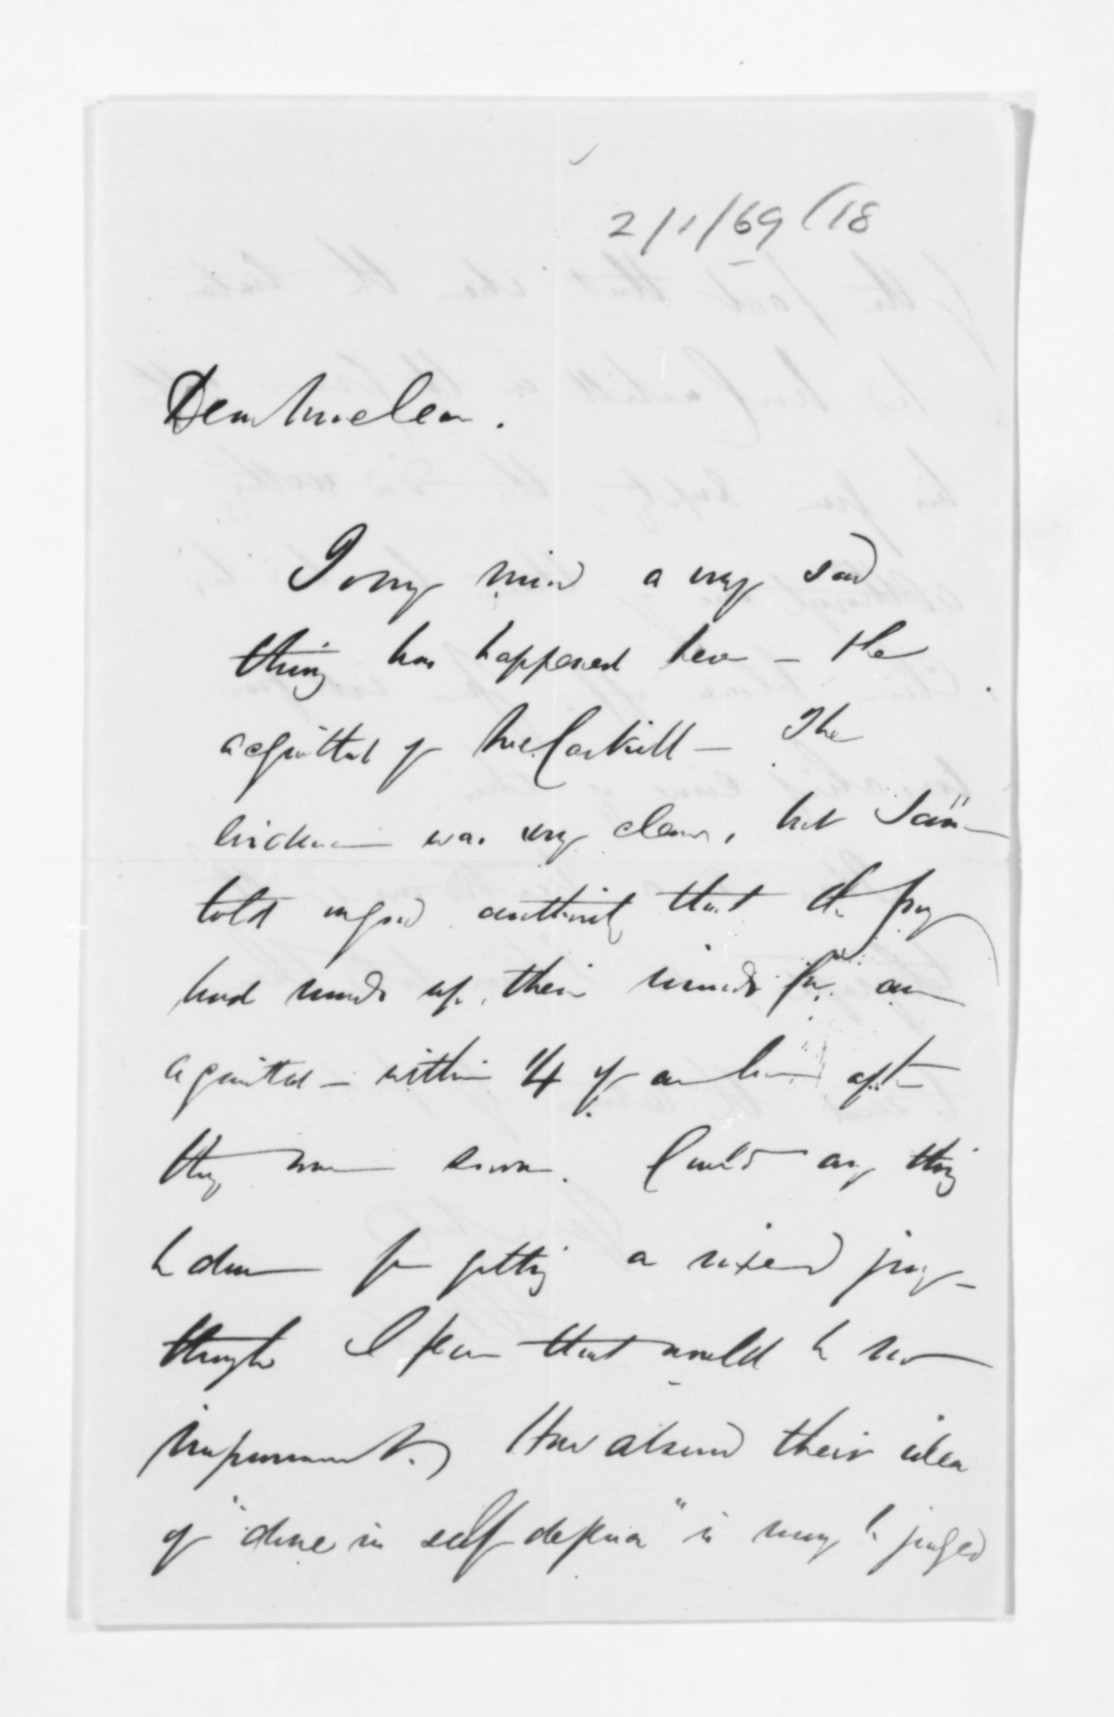 2/1/69 (18
Dear McLean.
To my mind a very sad
thing has happened here – the
acquittal of McCaskill – The
evidence was very clear, but I am
told on good authority that the jury
had made up their minds for an
acquittal – within 1/4 of an hour after
they were sworn. Could any thing
be done for getting a mixed jury –
though I fear that would be no
improvement. How absurd their idea
of "done in self defence" is may be judged